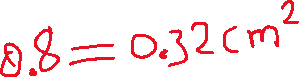 0.8=0.32cm²